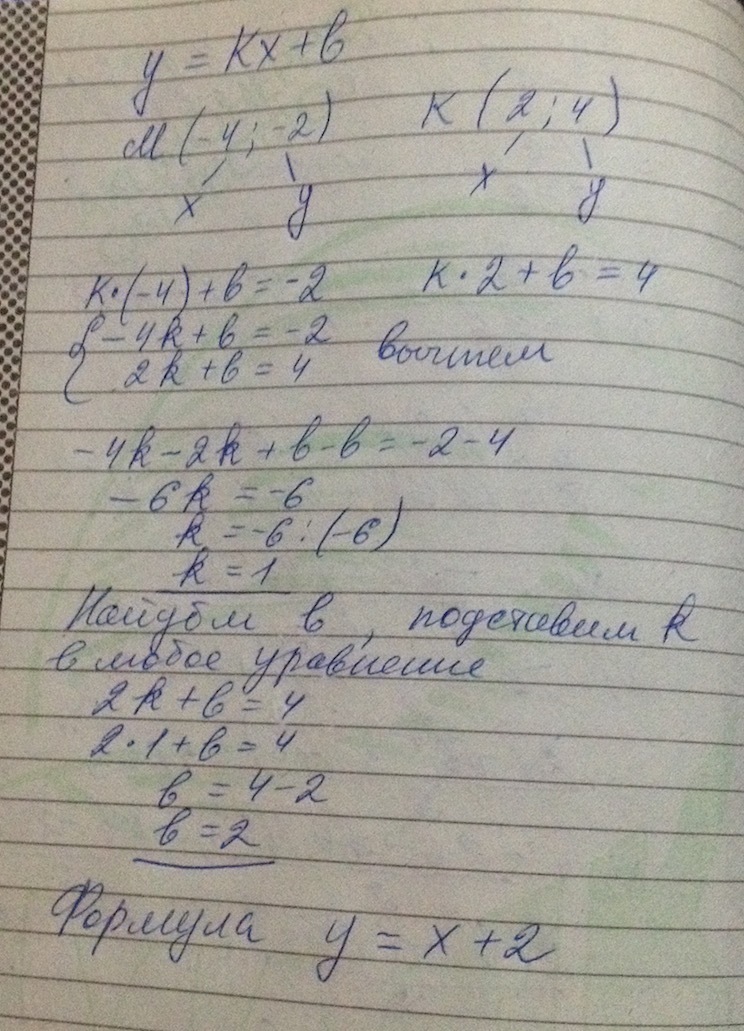 y = Kx + b
M (-4; -2) K (2; 4)
x y x y
K·(-4) + b = -2 K·2 + b = 4
{ -4k + b = -2
2k + b = 4 вычтем
-4k - 2k + b - b = -2 - 4
-6k = -6
k = -6 : (-6)
k = 1
Найдём b, подставим k
в любое уравнение
2k + b = 4
2·1 + b = 4
b = 4 - 2
b = 2
Формула y = x + 2